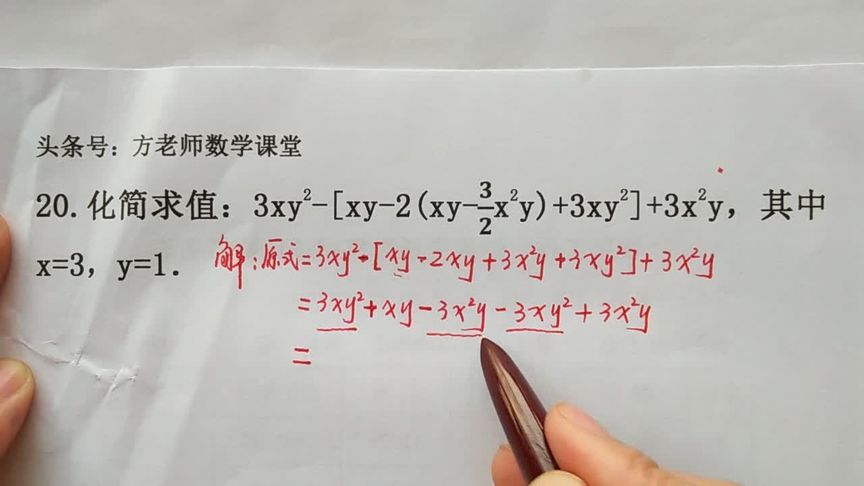 头条号：方老师数学课堂
20.化简求值：3xy²-[xy-2(xy-3/2x²y)+3xy²]+3x²y，其中
x=3，y=1.
解:原式=3xy²-[xy-2xy+3x²y+3xy²]+3x²y
=3xy²+xy-3x²y-3xy²+3x²y
=